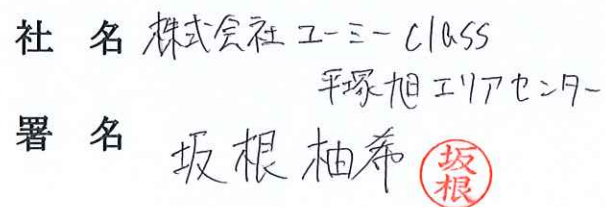 社 名 株式会社 ユーミーClass
平塚旭エリアセンター
署 名 坂根 柚希
坂根